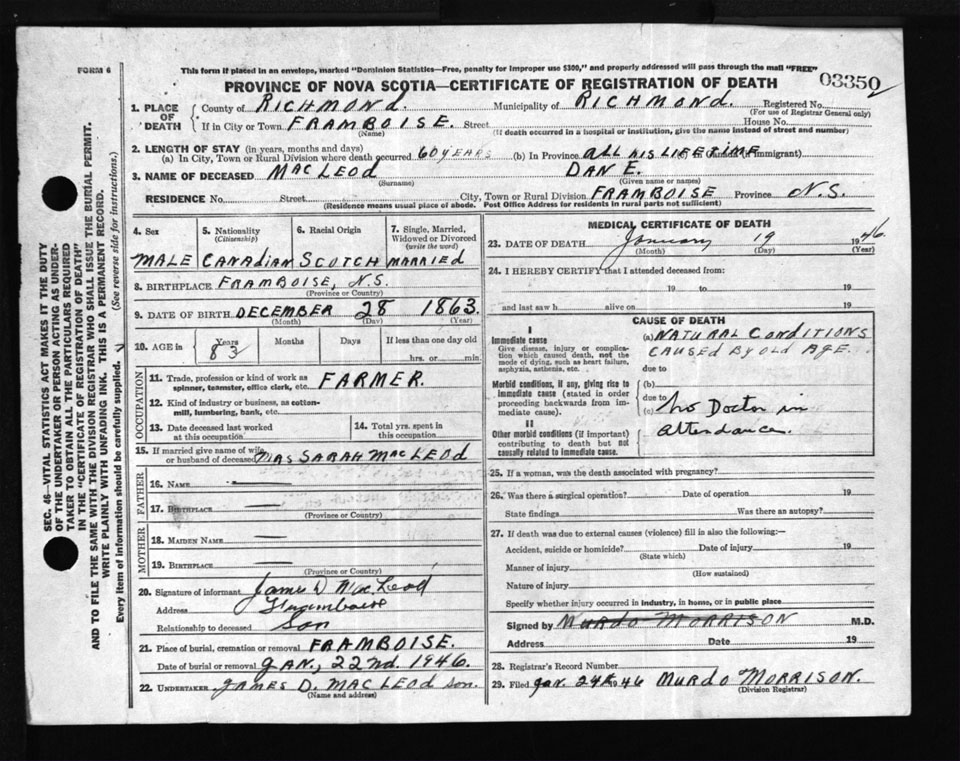 FORM 6
This form if placed in an envelope, marked "Dominion Statistics—Free, penalty for improper use $300," and properly addressed will pass through the mail "FREE"
PROVINCE OF NOVA SCOTIA—CERTIFICATE OF REGISTRATION OF DEATH
03350
1. PLACE OF DEATH
County of RICHMOND. Municipality of RICHMOND. Registered No.
(For use of Registrar General only)
If in City or Town FRAMBOISE. Street House No.
(Name) (If death occurred in a hospital or institution, give the name instead of street and number)
2. LENGTH OF STAY (in years, months and days)
(a) In City, Town or Rural Division where death occurred 60 YEARS (b) In Province ALL HIS LIFETIME immigrant)
3. NAME OF DECEASED MACLEOD DAN E.
(Surname) (Given name or names)
RESIDENCE No. Street City, Town or Rural Division FRAMBOISE Province N.S.
(Residence means usual place of abode. Post Office Address for residents in rural parts not sufficient)
4. Sex 5. Nationality (Citizenship) 6. Racial Origin 7. Single, Married, Widowed or Divorced (write the word)
MALE CANADIAN SCOTCH MARRIED
8. BIRTHPLACE FRAMBOISE, N.S.
(Province or Country)
9. DATE OF BIRTH DECEMBER 28 1863.
(Month) (Day) (Year)
10. AGE in Years Months Days If less than one day old
83 hrs. or min.
OCCUPATION
11. Trade, profession or kind of work as spinner, teamster, office clerk, etc. FARMER.
12. Kind of industry or business, as cotton-mill, lumbering, bank, etc.
13. Date deceased last worked at this occupation
14. Total yrs. spent in this occupation
15. If married give name of wife or husband of deceased MRS SARAH MACLEOD
FATHER
16. NAME —
17. BIRTHPLACE —
(Province or Country)
MOTHER
18. MAIDEN NAME —
19. BIRTHPLACE —
(Province or Country)
20. Signature of informant James D MacLeod
Address Framboise
Relationship to deceased Son
21. Place of burial, cremation or removal FRAMBOISE.
Date of burial or removal JAN, 22nd. 1946.
22. UNDERTAKER JAMES D. MACLEOD Son.
(Name and address)
MEDICAL CERTIFICATE OF DEATH
23. DATE OF DEATH January 19 1946.
(Month) (Day) (Year)
24. I HEREBY CERTIFY that I attended deceased from:
19 to 19
and last saw h alive on 19
CAUSE OF DEATH
I
Immediate cause
Give disease, injury or complication which caused death, not the mode of dying, such as heart failure, asphyxia, asthenia, etc.
(a) NATURAL CONDITIONS
CAUSED BY OLD AGE.
due to
Morbid conditions, if any, giving rise to immediate cause (stated in order proceeding backwards from immediate cause).
(b)
due to
(c) No Doctor in
attendance.
II
Other morbid conditions (if important) contributing to death but not causally related to immediate cause.
25. If a woman, was the death associated with pregnancy?
26. Was there a surgical operation? Date of operation 19
State findings Was there an autopsy?
27. If death was due to external causes (violence) fill in also the following:—
Accident, suicide or homicide? Date of injury 19
(State which)
Manner of injury
(How sustained)
Nature of injury
Specify whether injury occurred in industry, in home, or in public place
Signed by MURDO MORRISON M.D.
Address Date 19
28. Registrar's Record Number
29. Filed Jan. 24th 1946 MURDO MORRISON.
(Division Registrar)
SEC. 46—VITAL STATISTICS ACT MAKES IT THE DUTY
OF THE UNDERTAKER OR PERSON ACTING AS UNDERTAKER TO OBTAIN ALL THE PARTICULARS REQUIRED
IN THE "CERTIFICATE OF REGISTRATION OF DEATH"
AND TO FILE THE SAME WITH THE DIVISION REGISTRAR WHO SHALL ISSUE THE BURIAL PERMIT.
WRITE PLAINLY WITH UNFADING INK. THIS IS A PERMANENT RECORD.
Every item of information should be carefully supplied. (See reverse side for instructions.)